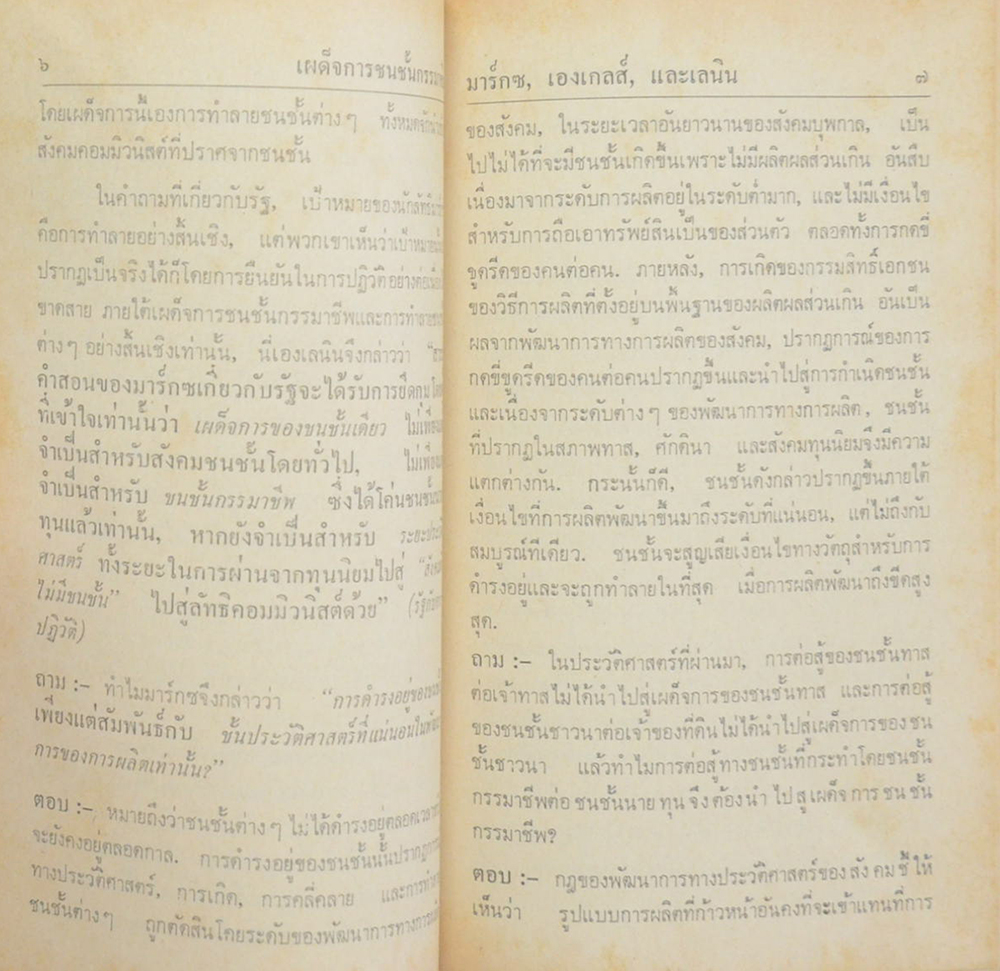 ๖ เผด็จการชนชั้นกรรมา
โดยเผด็จการนี้เองการทำลายชนชั้นต่างๆ ทั้งหมด
สังคมคอมมิวนิสต์ที่ปราศจากชนชั้น
ในคำถามที่เกี่ยวกับรัฐ, เป้าหมายของนักลัทธิ
คือการทำลายอย่างสิ้นเชิง, แต่พวกเขาเห็นว่าเป้าหมาย
ปรากฏเป็นจริงได้ก็โดยการยืนยันในการปฏิวัติอย่างต่อเนื่อง
ขาดสาย ภายใต้เผด็จการชนชั้นกรรมาชีพและการทำลาย
ต่างๆ อย่างสิ้นเชิงเท่านั้น, นี่เองเลนินจึงกล่าวว่า
คำสอนของมาร์กซเกี่ยวกับรัฐจะได้รับการยึดกุมโดย
ที่เข้าใจเท่านั้นว่า เผด็จการของชนชั้นเดียว ไม่เพียง
จำเป็นสำหรับสังคมชนชั้นโดยทั่วไป, ไม่เพียง
จำเป็นสำหรับ ชนชั้นกรรมาชีพ ซึ่งได้โค่นชนชั้น
ทุนแล้วเท่านั้น, หากยังจำเป็นสำหรับ ระยะประวัติ
ศาสตร์ ทั้งระยะในการผ่านจากทุนนิยมไปสู่ “สังคม
ไม่มีชนชั้น” ไปสู่ลัทธิคอมมิวนิสต์ด้วย” (รัฐกับ
ปฏิวัติ)
ถาม :- ทำไมมาร์กซจึงกล่าวว่า “การดำรงอยู่ของชนชั้น
เพียงแต่สัมพันธ์กับ ชั้นประวัติศาสตร์ที่แน่นอนใน
การของการผลิตเท่านั้น?”
ตอบ :- หมายถึงว่าชนชั้นต่างๆ ไม่ได้ดำรงอยู่ตลอดเวลา
จะยังคงอยู่ตลอดกาล. การดำรงอยู่ของชนชั้นนั้นปรากฏการณ์
ทางประวัติศาสตร์, การเกิด, การคลี่คลาย และการทำลาย
ชนชั้นต่างๆ ถูกตัดสินโดยระดับของพัฒนาการทางการผลิต
มาร์กซ, เองเกลส์, และเลนิน ๗
ของสังคม, ในระยะเวลาอันยาวนานของสังคมบุพกาล, เป็น
ไปไม่ได้ที่จะมีชนชั้นเกิดขึ้นเพราะไม่มีผลิตผลส่วนเกิน อันสืบ
เนื่องมาจากระดับการผลิตอยู่ในระดับต่ำมาก, และไม่มีเงื่อนไข
สำหรับการถือเอาทรัพย์สินเป็นของส่วนตัว ตลอดทั้งการกดขี่
ขูดรีดของคนต่อคน. ภายหลัง, การเกิดของกรรมสิทธิ์เอกชน
ของวิธีการผลิตที่ตั้งอยู่บนพื้นฐานของผลิตผลส่วนเกิน อันเป็น
ผลจากพัฒนาการทางการผลิตของสังคม, ปรากฏการณ์ของการ
กดขี่ขูดรีดของคนต่อคนปรากฏขึ้นและนำไปสู่การกำเนิดชนชั้น
และเนื่องจากระดับต่างๆ ของพัฒนาการทางการผลิต, ชนชั้น
ที่ปรากฏในสภาพทาส, ศักดินา และสังคมทุนนิยมจึงมีความ
แตกต่างกัน. กระนั้นก็ดี, ชนชั้นดังกล่าวปรากฏขึ้นภายใต้
เงื่อนไขที่การผลิตพัฒนาขึ้นมาถึงระดับที่แน่นอน, แต่ไม่ถึงกับ
สมบูรณ์ทีเดียว. ชนชั้นจะสูญเสียเงื่อนไขทางวัตถุสำหรับการ
ดำรงอยู่และจะถูกทำลายในที่สุด เมื่อการผลิตพัฒนาถึงขีดสูง
สุด.
ถาม :- ในประวัติศาสตร์ที่ผ่านมา, การต่อสู้ของชนชั้นทาส
ต่อเจ้าทาสไม่ได้นำไปสู่เผด็จการของชนชั้นทาส และการต่อสู้
ของชนชั้นชาวนาต่อเจ้าของที่ดินไม่ได้นำไปสู่เผด็จการของชน
ชั้นชาวนา แล้วทำไมการต่อสู้ทางชนชั้นที่กระทำโดยชนชั้น
กรรมาชีพต่อชนชั้นนายทุนจึงต้องนำไปสู่เผด็จการชนชั้น
กรรมาชีพ?
ตอบ :- กฎของพัฒนาการทางประวัติศาสตร์ของสังคมชี้ให้
เห็นว่า รูปแบบการผลิตที่ก้าวหน้าอันคงที่จะเข้าแทนที่การ